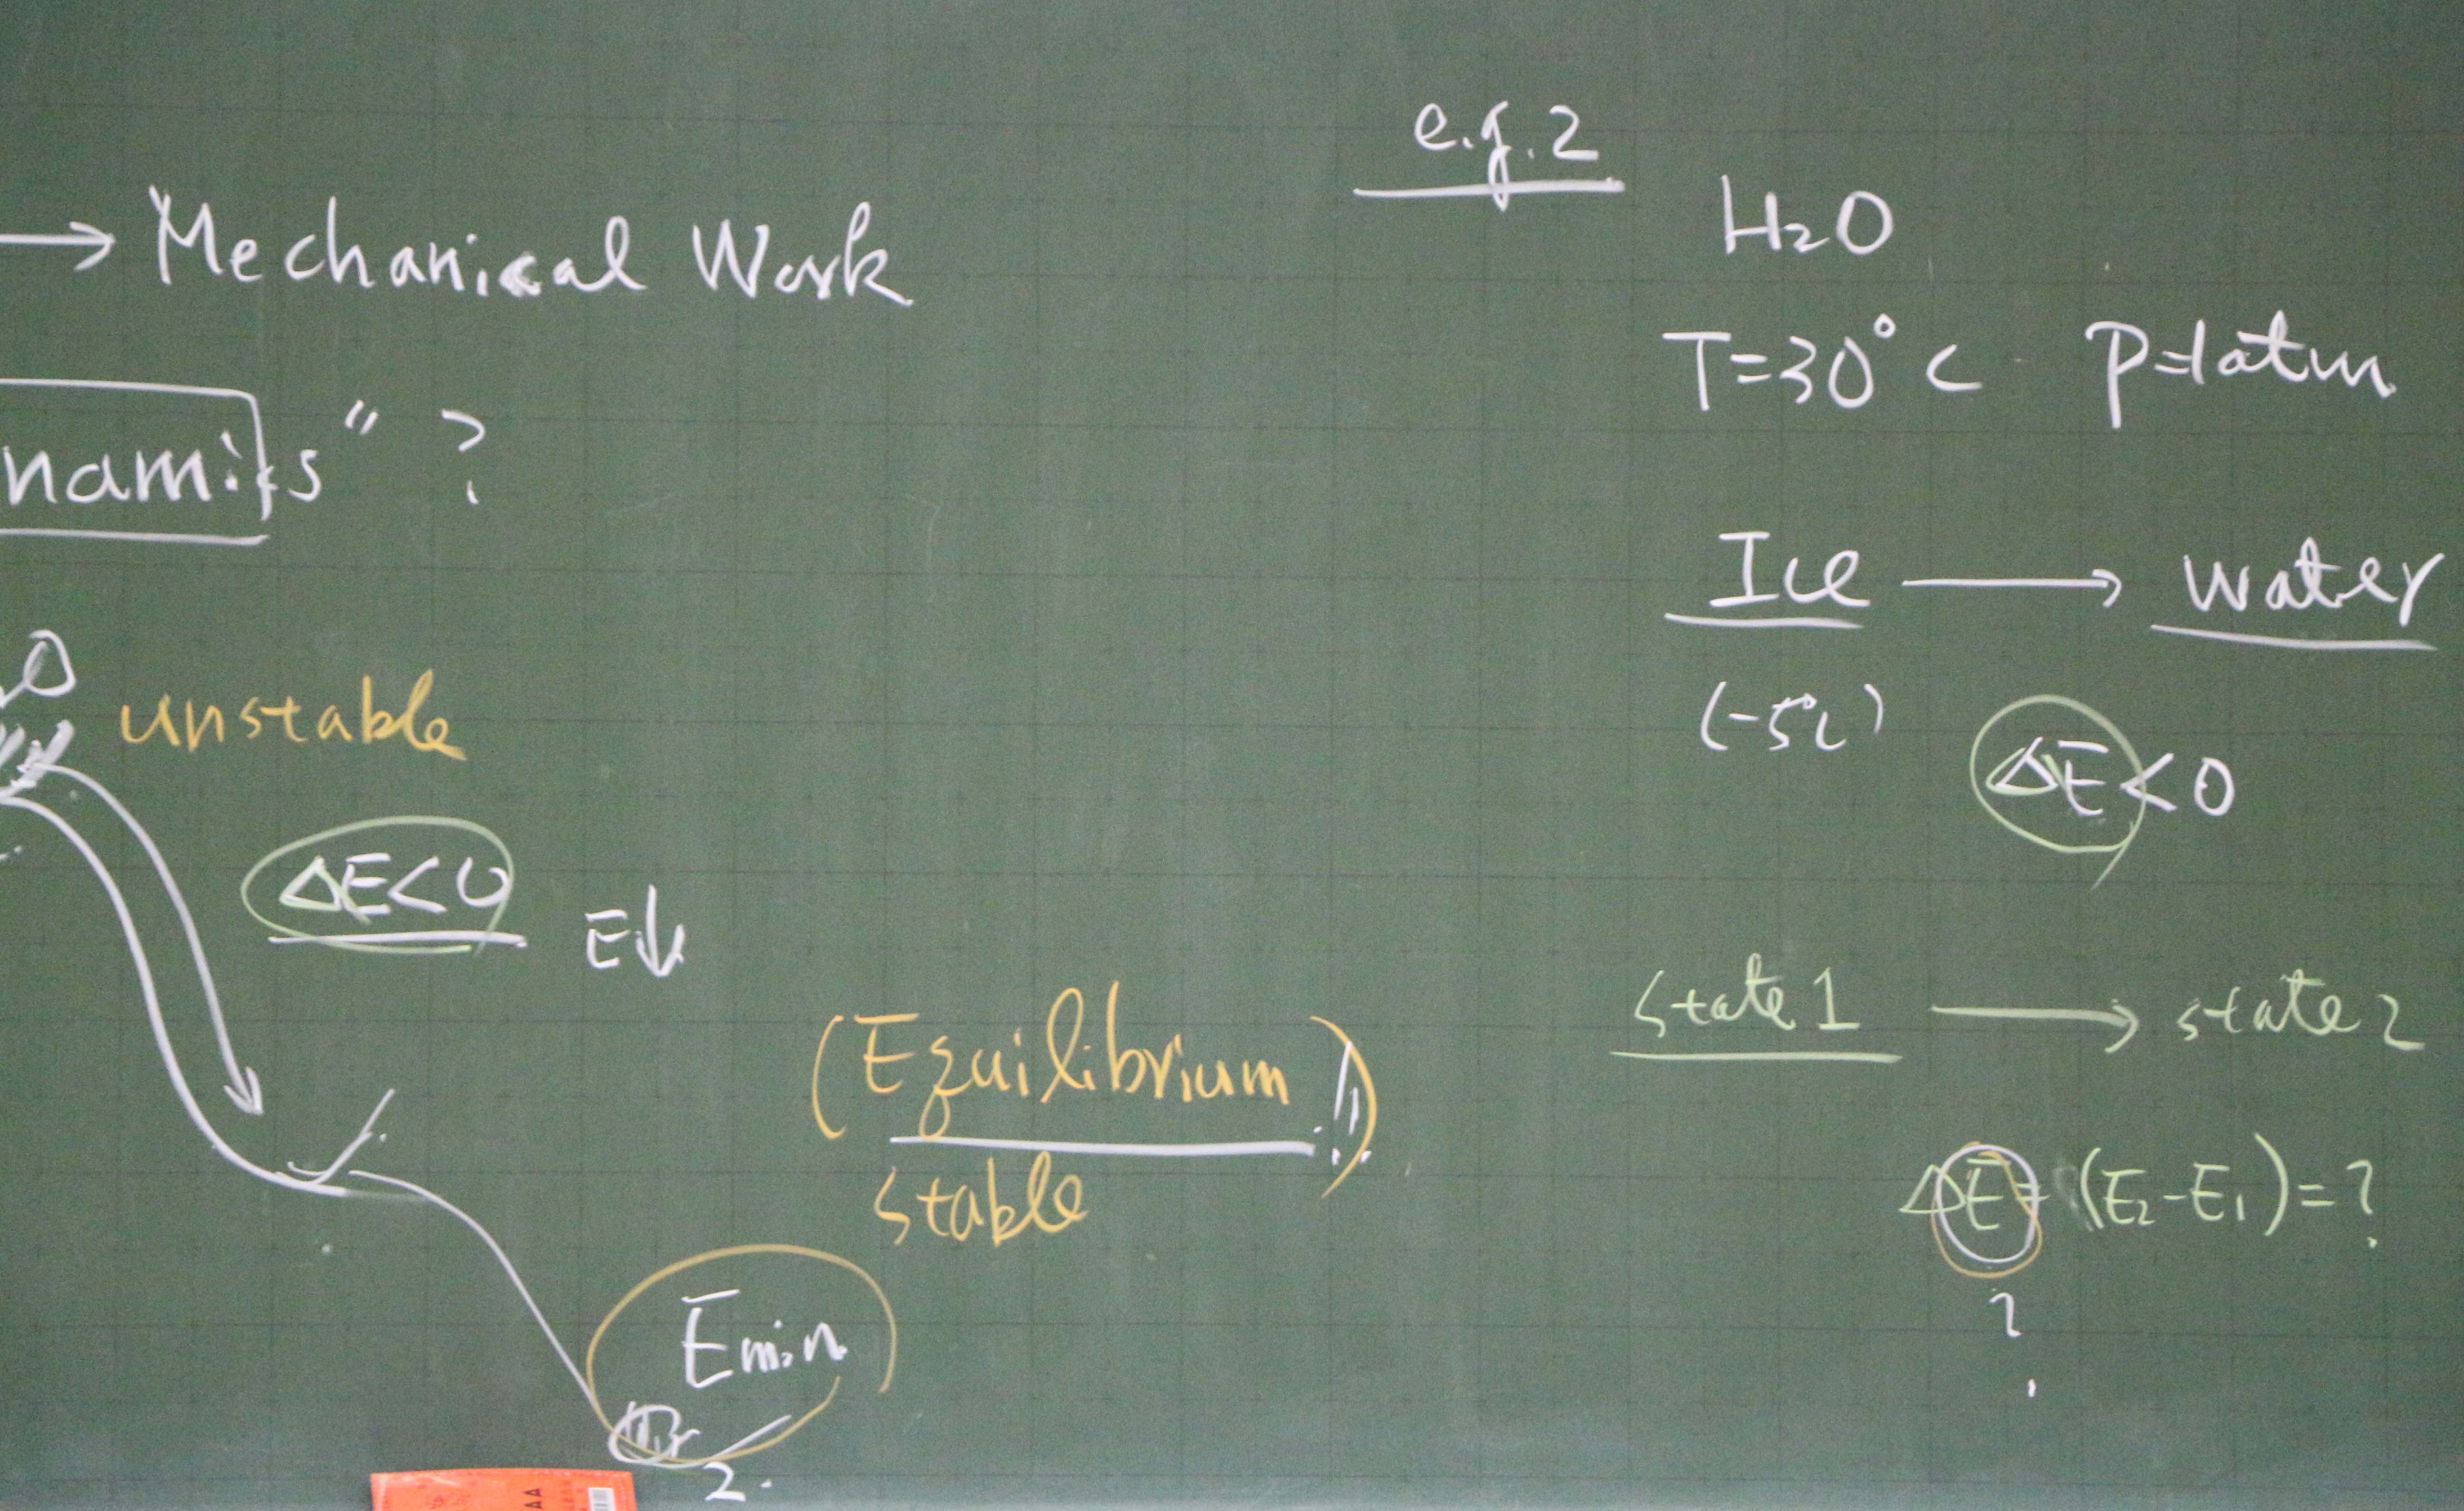 → Mechanical Work
namics" ?
unstable
ΔE<0
E↓
(Equilibrium!!)
stable
Emin
2.
e.g.2
H₂O
T=30°C P=1atm
Ice → water
(-5℃)
ΔE<0
state1 → state2
ΔE=(E₂-E₁)=?
?